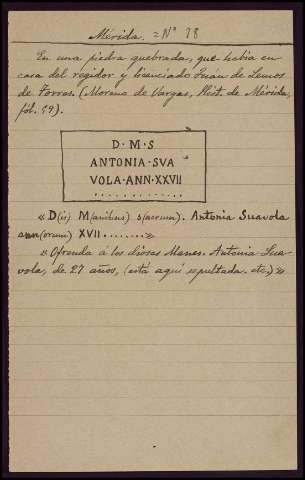 Mérida. = Nº 78
En una piedra quebrada, que había en
casa del regidor y licenciado Juán de Lemos
de Porras. (Moreno de Vargas, Hist. de Mérida,
fól. 59).
D · M · S
ANTONIA · SVA
VOLA · ANN · XXVII
. . . . . . . . . . . .
« D(is) M(anibus) s(acrum). Antonia Suavola
ann(orum) XVII ........»
« Ofrenda á los dioses Manes. Antonia Sua-
vola, de 27 años, (está aquí sepultada. etc.)».